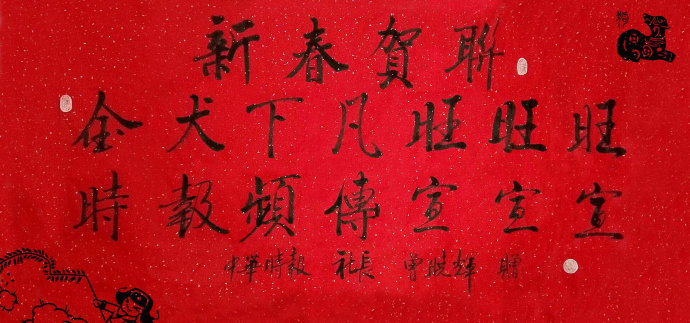 新春賀聯
金犬下凡旺旺旺
時報頻傳宣宣宣
中華時報 社長 曾晓輝 贈